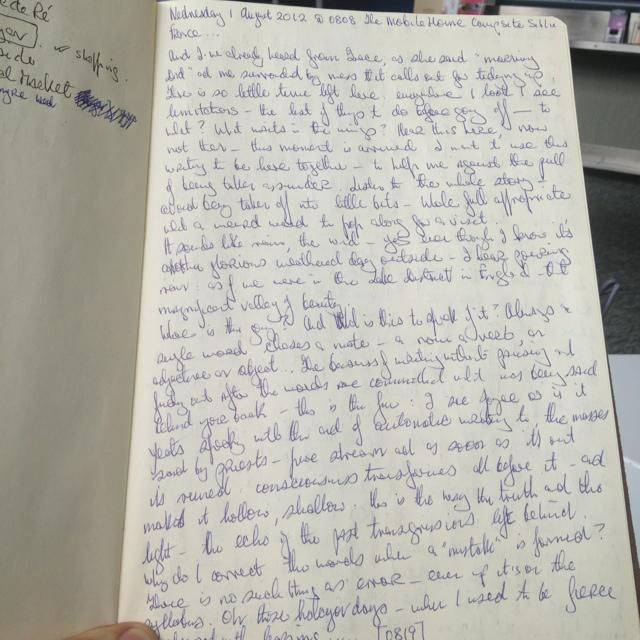 de Ré
shopping.
Market
Wednesday 1 August 2012 @ 0808 The Mobile Home Campsite
France...
And I've already heard from Grace, as she said "morning
" and me surrounded by mess that calls out for tidying up.
There is so little time left here. everywhere I look I see
limitations – the list of things to do before going off — to
what? What waits in the wings? Hear this here, now
not then – this moment is around. I want to use this
writing to be here together – to help me against the pull
of being taken assunder to the whole story
about being taken off into little bits – Whole full appropriate
what a weird word to pop along for a visit.
It sounds like rain, the wind – yes even though I know it's
another glorious weathered day outside – I hear pouring
now: as if we were in the lake district in England – that
magnificent valley of beauty.
Where is this going? And what is this to speak of it? Always a
single word closes a note – a noun, a verb, or
adjective or object... The business of writing without pausing and
finding out after the words are committed what was being said
behind your back – this is the fun. I see
Yeats spoke with this and of automatic writing to the masses
said by priests – free stream and as soon as it's out
it's ruined. consciousness transforms all before it – and
makes it hollow, shallow. this is the way the truth and the
light – the echo of the past transgressions left behind.
Why do I correct the words when a "mistake" is formed?
There is no such thing as error – even if it's on the
syllabus. Oh those halcyon days – when I used to be fierce
with [0819]